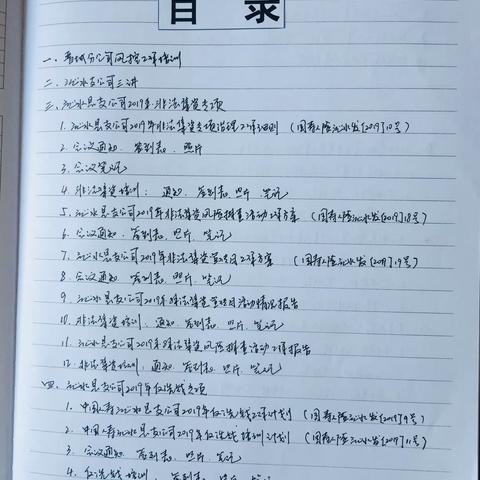 目 录
一、晋城分公司风控工作培训
二、沁水支公司三讲
三、沁水县支公司2019年非法集资专项
1. 沁水县支公司2019年非法集资专项治理工作细则 (国寿人险沁水发[2019]10号)
2. 会议通知、签到表、照片
3. 会议笔记
4. 非法集资培训:通知、签到表、照片、笔记
5. 沁水县支公司2019年非法集资风险排查活动工作方案 (国寿人险沁水发[2019]18号)
6. 会议通知、签到表、照片、笔记
7. 沁水县支公司2019年非法集资宣传月工作方案 (国寿人险沁水发[2019]19号)
8. 会议通知、签到表、照片、笔记
9. 沁水县支公司2019年非法集资宣传月活动情况报告
10. 非法集资培训、通知、签到表、照片、笔记
11. 沁水县支公司2019年非法集资风险排查活动工作报告
12. 非法集资培训、通知、签到表、照片、笔记
四、沁水县支公司2019年反洗钱专项
1. 中国人寿沁水县支公司2019年反洗钱工作计划 (国寿人险沁水发[2019]9号)
2. 中国人寿沁水县支公司2019年反洗钱培训计划 (国寿人险沁水发[2019]11号)
3. 会议通知、签到表、照片、笔记
4. 反洗钱培训、签到表、照片